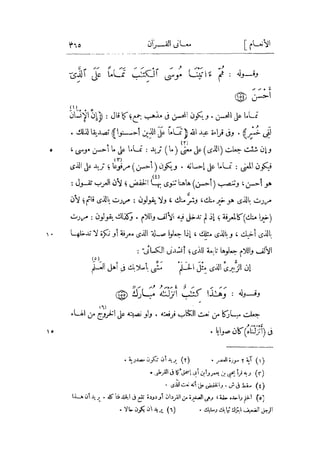 الأنعام ]    معانى القرآن    ٣٦٥
وقوله : ثُمَّ ءَاتَيْنَا مُوسَى ٱلْكِتَٰبَ تَمَامًا عَلَى ٱلَّذِىٓ
أَحْسَنَ
تماما على المحسن . ويكون المحسن فى مذهب جمع؛ كما قال : (إِنَّ الْإِنْسَانَ
لَفِى خُسْرٍ) (١). وفى قراءة عبد الله (تماما على الذين أحسنوا) تصديقا لذلك .
وإن شئت جعلت (الذى) على معنى (ما) (٢) تريد : تماما على ما أحسن موسى ، ٥
فيكون المعنى : تماما على إحسانه . ويكون (أحسن) مرفوعا (٣)؛ تريد على الذى
هو أحسن، وتنصب (أحسن) هاهنا تنوى بها (٤) الخفض؛ لأن العرب تقول :
مررت بالذى هو خير منك، وشر منك، ولا يقولون : مررت بالذى قائم؛ لأن
(خيرا منك) كالمعرفة ، إذ لم تدخل فيه الألف واللام. وكذلك يقولون: مررت
بالذى أخيك ، وبالذى مثلك ، إذا جعلوا صلة الذى معرفة أو نكرة لا تدخلها ١٠
الألف واللام جعلوها تابعة للذى؛ أنشدنى الكسائىّ :
إن الزُّبيرىّ الذى مِثْلَ الحَلَمْ    مَشَّى بأسلابك فى أهل العَلَم (٥)
وقوله : وَهَٰذَا كِتَٰبٌ أَنزَلْنَٰهُ مُبَارَكٌ
جعلت مباركا من نعت الكتاب فرفعته . ولو نصبته على الخروج (٦) من الهاء
فى (أَنْزَلْنَاهُ) كان صوابا . ١٥
(١) آية ٢ سورة العصر .    (٢) يريد أن تكون مصدرية .
(٣) وبه قرأ يحيى بن يعمر وابن أبى إسحق كما فى القرطبى .
(٤) سقط فى ش . والخفض على أنه نعت للذى .
(٥) الحلم واحده حلمة؛ وهى الصغيرة من القردان أو دودة تقع فى الجلد فتأكله . يريد أن هذا
الرجل الضعيف ابتزك ثيابك وسلبك .    (٦) يريد أن يكون حالا .